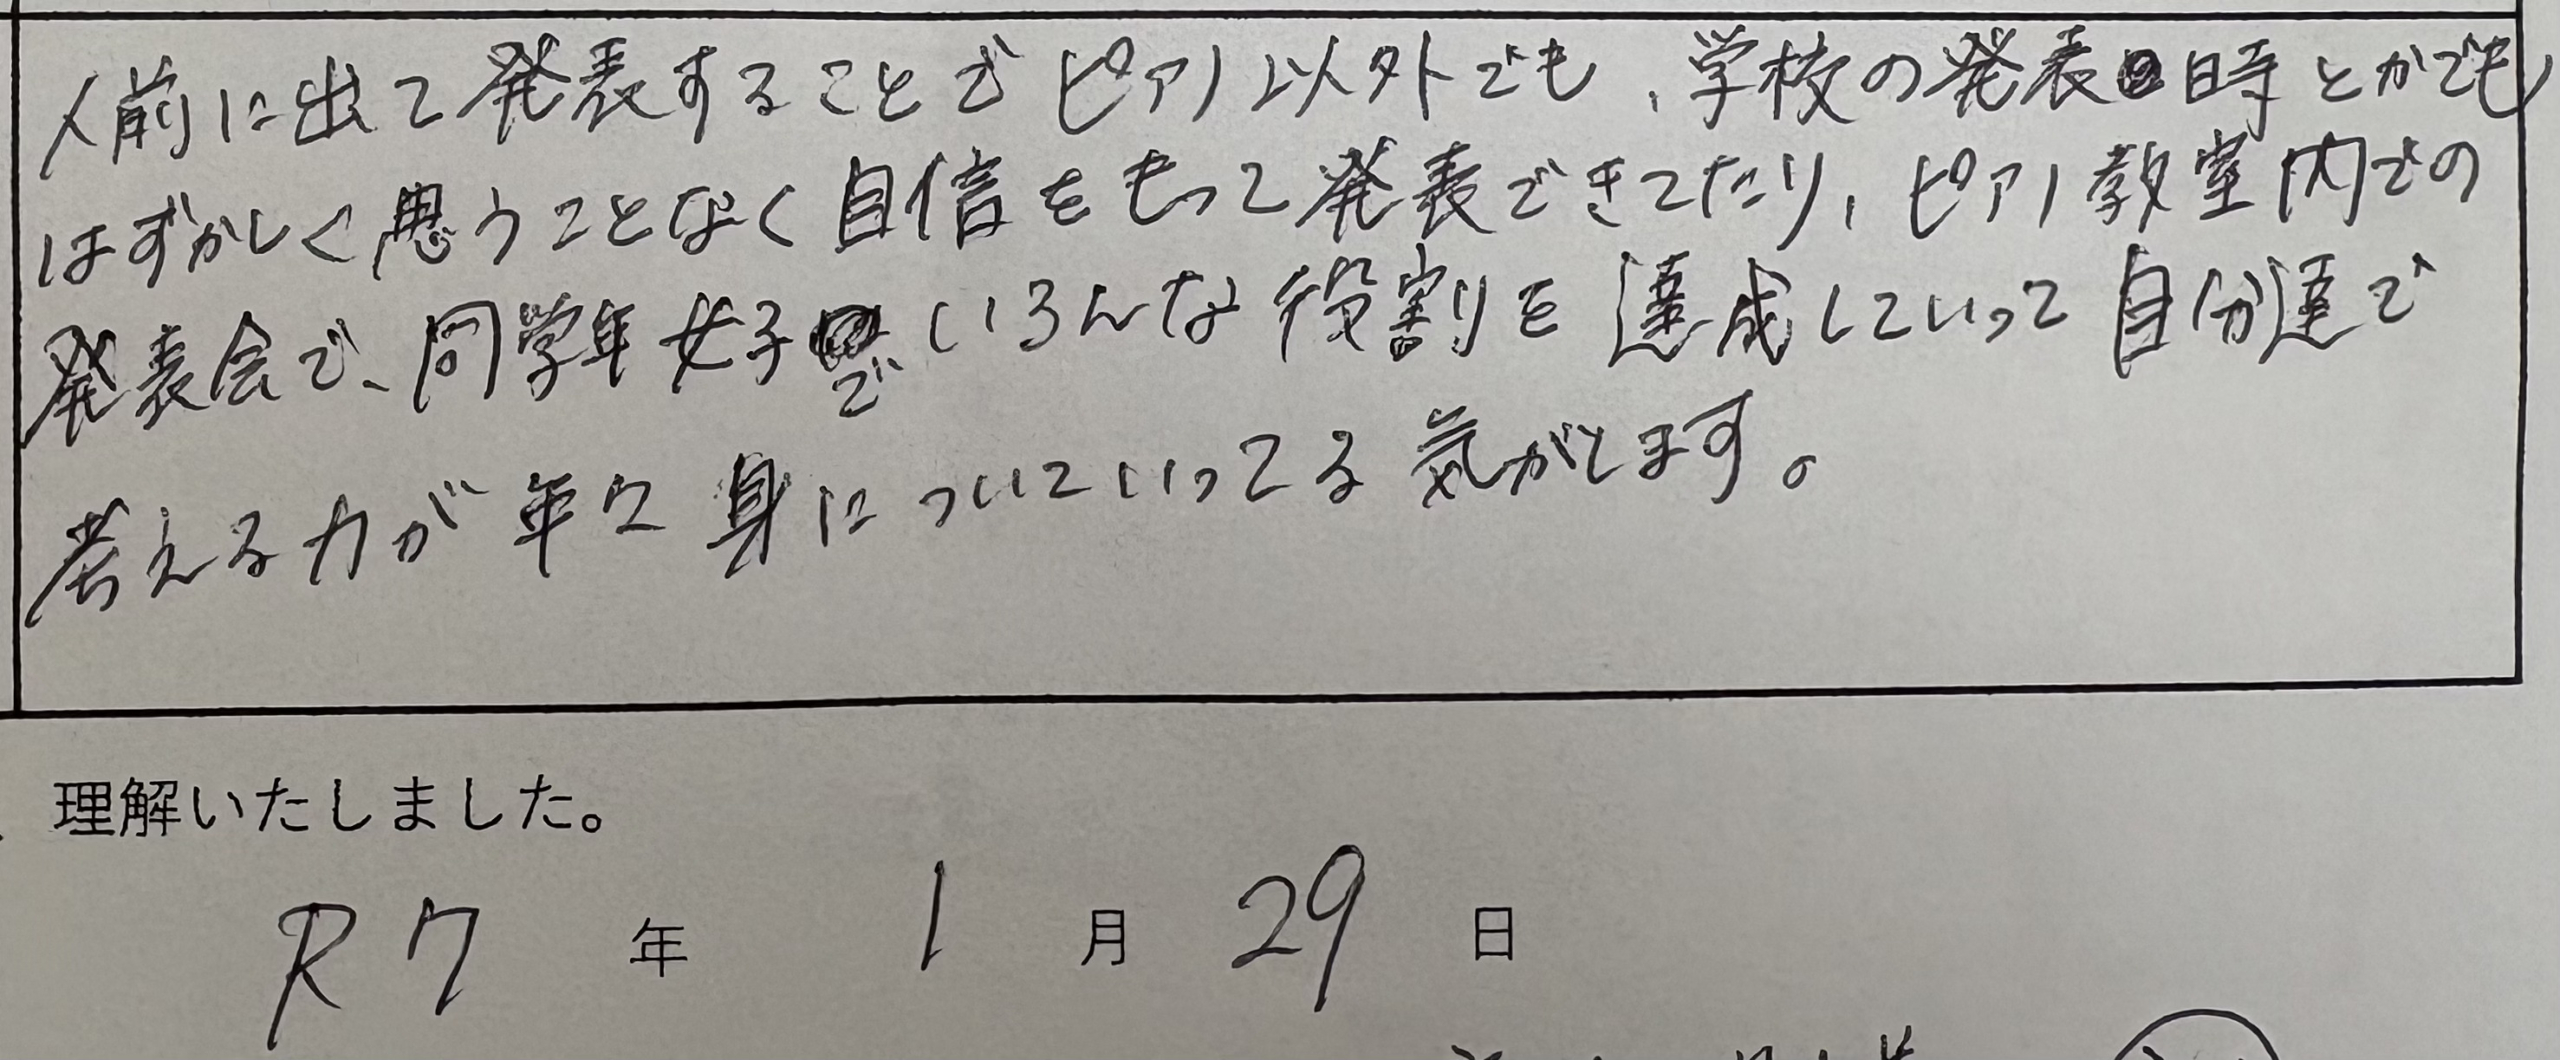 人前に出て発表することでピアノ以外でも、学校の発表の時とかでも
はずかしく思うことなく自信をもって発表できてたり、ピアノ教室内での
発表会で、同学年女子でいろんな役割を達成していって自分達で
考える力が年々身についていってる気がします。
理解いたしました。
R7年 1月 29日